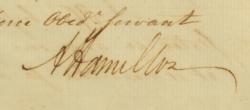 Obed. Servant
A Hamilton